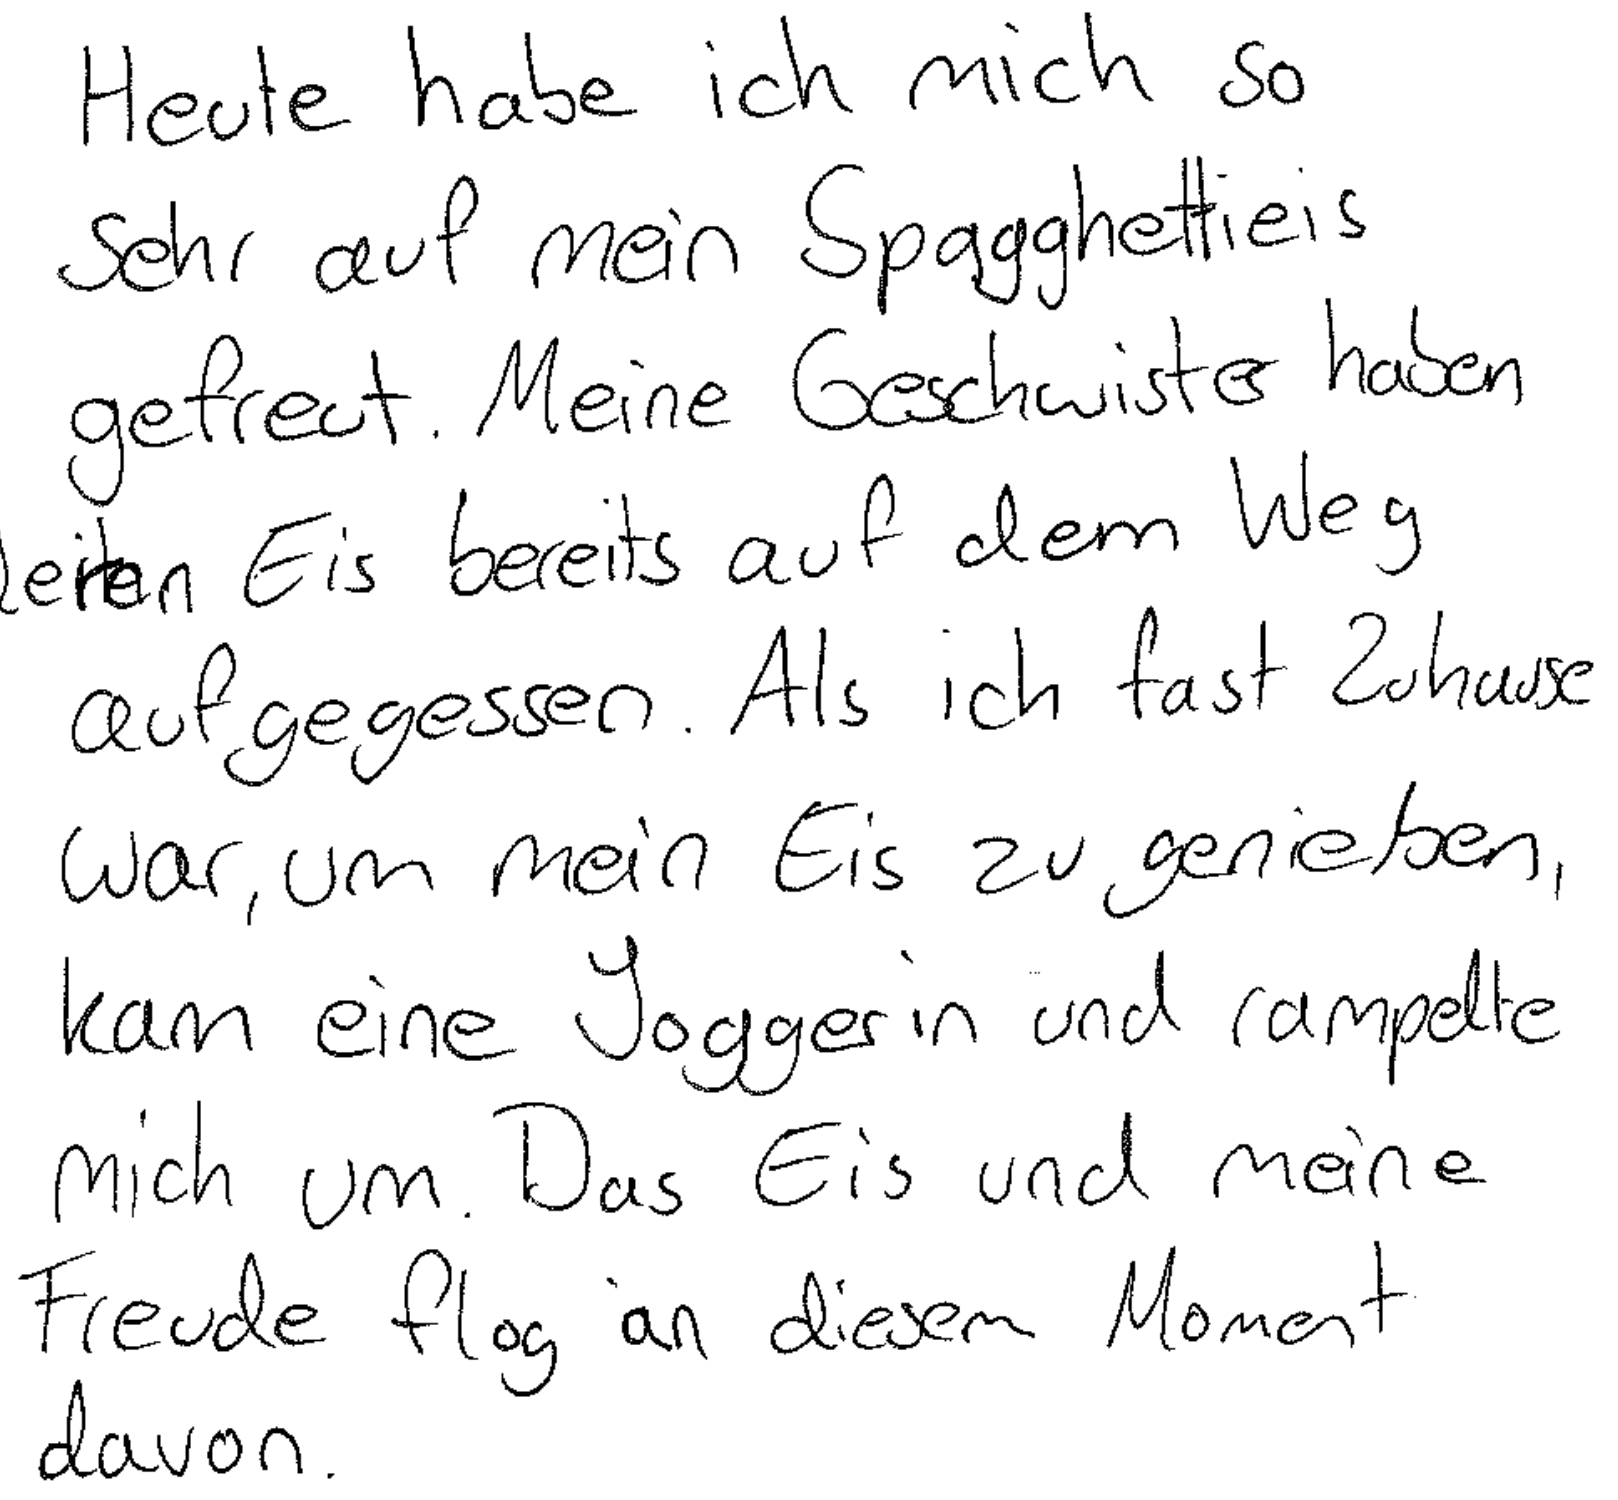 Heute habe ich mich so
sehr auf mein Spagghettieis
gefreut. Meine Geschwister haben
Eis bereits auf dem Weg
aufgegessen. Als ich fast Zuhause
war, um mein Eis zu genießen,
kam eine Joggerin und rampelte
mich um. Das Eis und meine
Freude flog an diesem Moment
davon.